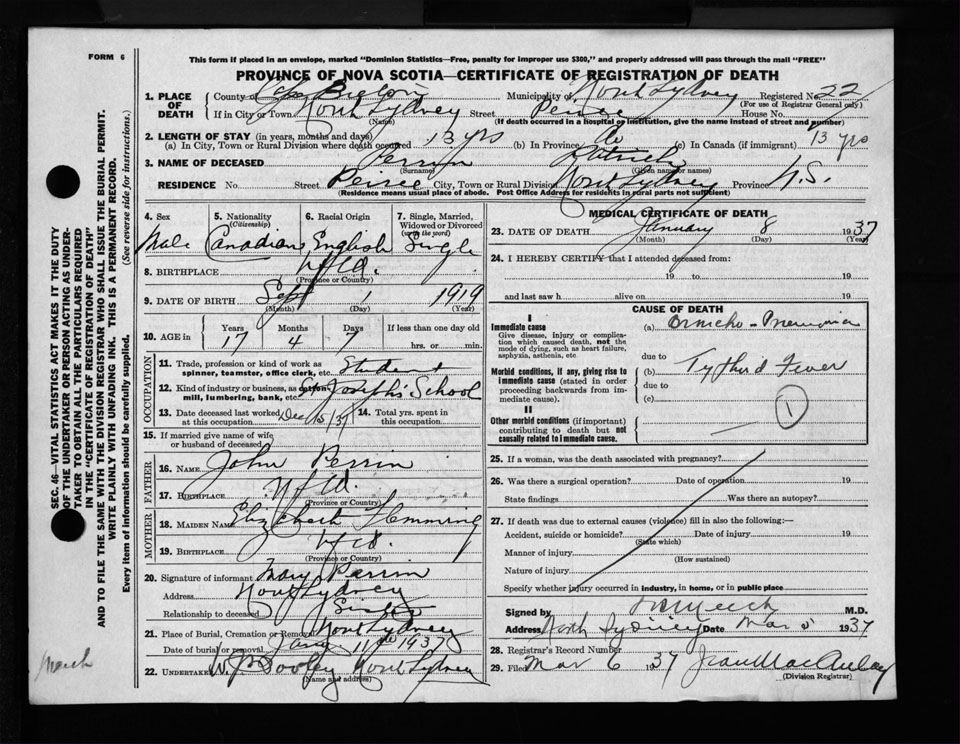 FORM 6
This form if placed in an envelope, marked "Dominion Statistics—Free, penalty for improper use $300," and properly addressed will pass through the mail "FREE"
PROVINCE OF NOVA SCOTIA—CERTIFICATE OF REGISTRATION OF DEATH
1. PLACE OF DEATH
County of Cape Breton Municipality of North Sydney Registered No. 22
(For use of Registrar General only)
If in City or Town North Sydney Street Peirce House No.
(Name) (If death occurred in a hospital or institution, give the name instead of street and number)
2. LENGTH OF STAY (in years, months and days)
(a) In City, Town or Rural Division where death occurred 13 yrs (b) In Province do (c) In Canada (if immigrant) 13 yrs
3. NAME OF DECEASED Perrin Patrick
(Surname) (Given name or names)
RESIDENCE No. Street Peirce City, Town or Rural Division North Sydney Province N.S.
(Residence means usual place of abode. Post Office Address for residents in rural parts not sufficient)
SEC. 46—VITAL STATISTICS ACT MAKES IT THE DUTY
OF THE UNDERTAKER OR PERSON ACTING AS UNDER-
TAKER TO OBTAIN ALL THE PARTICULARS REQUIRED
IN THE "CERTIFICATE OF REGISTRATION OF DEATH"
AND TO FILE THE SAME WITH THE DIVISION REGISTRAR WHO SHALL ISSUE THE BURIAL PERMIT.
WRITE PLAINLY WITH UNFADING INK. THIS IS A PERMANENT RECORD.
Every item of information should be carefully supplied. (See reverse side for instructions.)
4. Sex 5. Nationality (Citizenship) 6. Racial Origin 7. Single, Married, Widowed or Divorced (write the word)
Male Canadian English Single
8. BIRTHPLACE Nfld.
(Province or Country)
9. DATE OF BIRTH Sept 1 1919
(Month) (Day) (Year)
10. AGE in Years Months Days If less than one day old
17 4 7 hrs. or min.
OCCUPATION
11. Trade, profession or kind of work as spinner, teamster, office clerk, etc. Student
12. Kind of industry or business, as cotton mill, lumbering, bank, etc. St Joseph's School
13. Date deceased last worked at this occupation Dec 15/37 14. Total yrs. spent in this occupation
15. If married give name of wife or husband of deceased
FATHER
16. NAME John Perrin
17. BIRTHPLACE Nfld.
(Province or Country)
MOTHER
18. MAIDEN NAME Elizabeth Hemming
19. BIRTHPLACE Nfld.
(Province or Country)
20. Signature of informant Mary Perrin
Address North Sydney
Relationship to deceased Sister
21. Place of Burial, Cremation or Removal North Sydney
Date of burial or removal Jany 11th 1937
22. UNDERTAKER W. J. Dooley North Sydney
(Name and address)
March
MEDICAL CERTIFICATE OF DEATH
23. DATE OF DEATH January 8 1937
(Month) (Day) (Year)
24. I HEREBY CERTIFY that I attended deceased from:
19 to 19
and last saw h alive on 19
CAUSE OF DEATH
I
Immediate cause
Give disease, injury or complication which caused death, not the mode of dying, such as heart failure, asphyxia, asthenia, etc
(a) Broncho-Pneumonia
due to
Morbid conditions, if any, giving rise to immediate cause (stated in order proceeding backwards from immediate cause).
(b) Typhoid Fever
due to
(c)
1
II
Other morbid conditions (if important) contributing to death but not causally related to immediate cause.
25. If a woman, was the death associated with pregnancy?
26. Was there a surgical operation? Date of operation 19
State findings Was there an autopsy?
27. If death was due to external causes (violence) fill in also the following:—
Accident, suicide or homicide? Date of injury 19
(State which)
Manner of injury
(How sustained)
Nature of injury
Specify whether injury occurred in industry, in home, or in public place
Signed by Meech M.D.
Address North Sydney Date Mar 5 1937
28. Registrar's Record Number
29. Filed Mar 6 1937 Jean MacAulay
(Division Registrar)